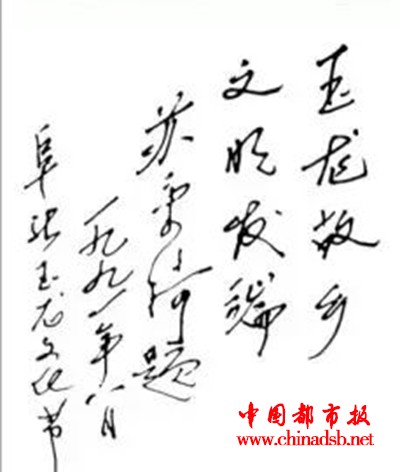 玉龙故乡
文明发端
苏秉琦题
一九九一年八月
阜新玉龙文化节
中国都市报
www.chinadsb.net